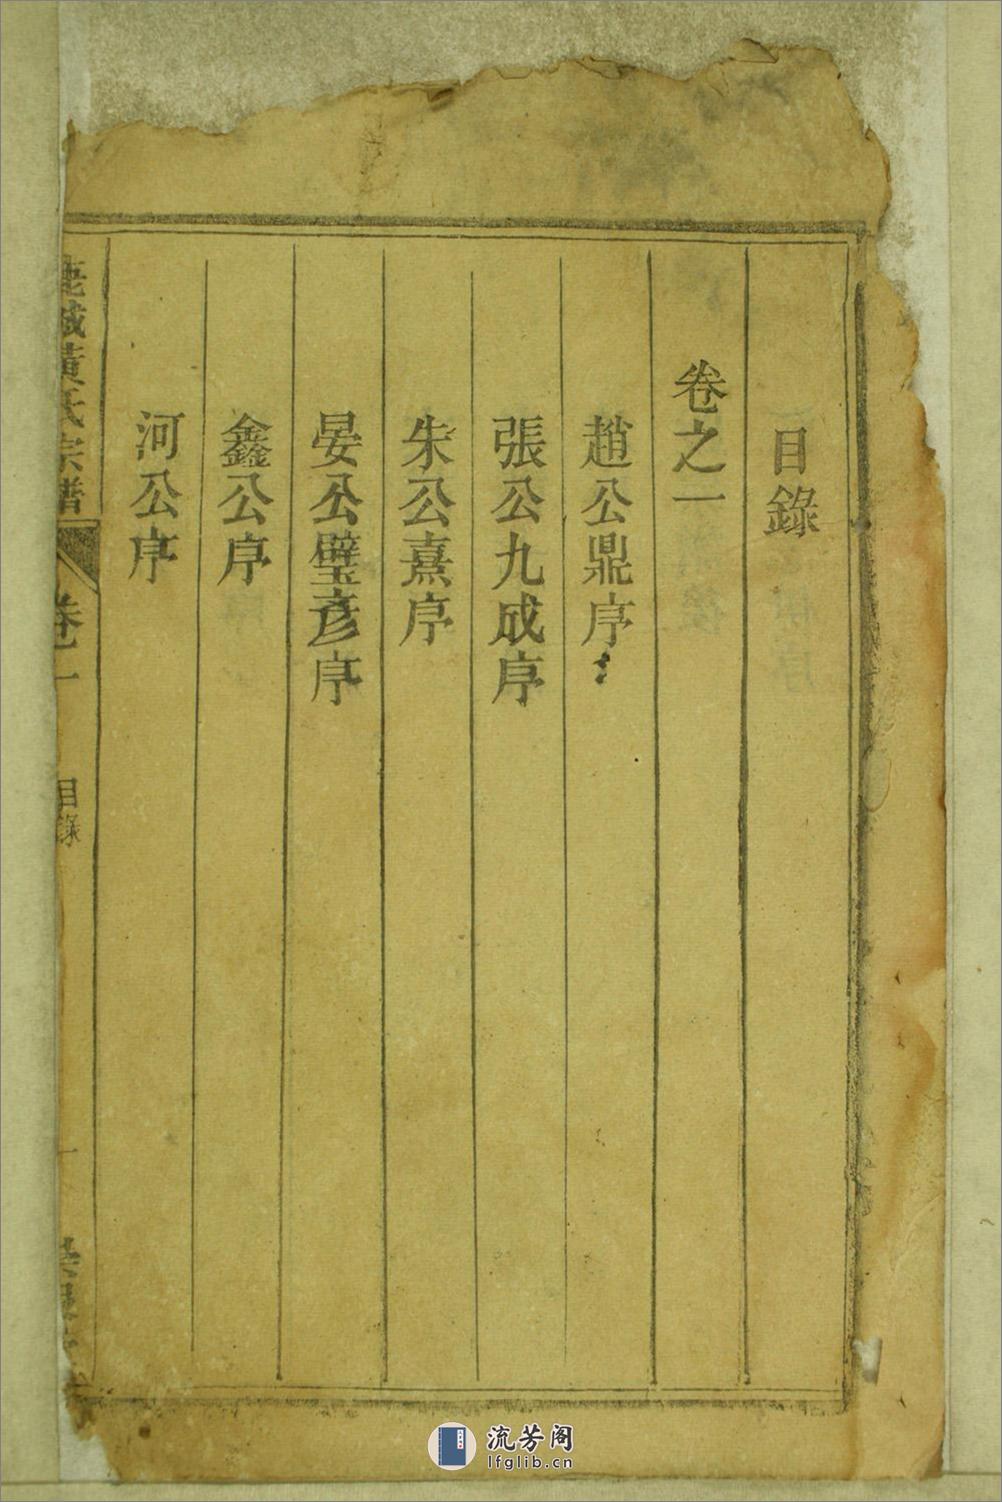 目錄
卷之一
趙公鼎序
張公九成序
朱公熹序
晏公璧彥序
鑫公序
河公序
鹿城黃氏宗譜
卷一
目錄
一
流芳阁
lfglib.cn